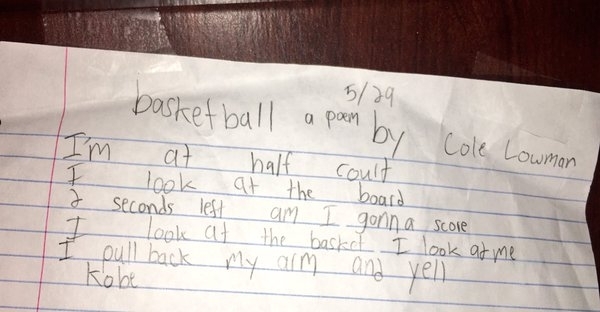 5/29
basketball a poem by Cole Lowman
I'm at half court
I look at the board
2 seconds left am I gonna score
I look at the basket I look at me
I pull back my arm and yell
Kobe